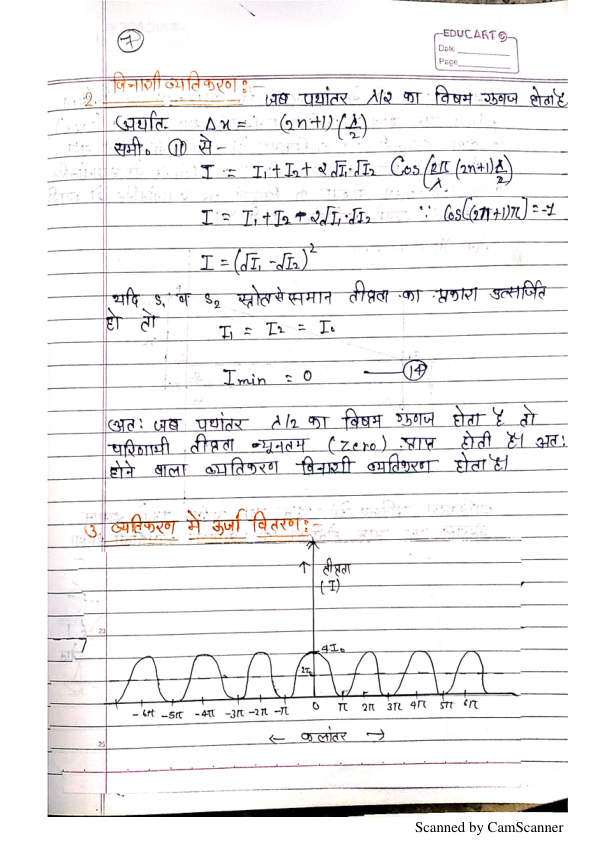 7
EDUCART
Date
Page
2. विनाशी व्यतिकरण :-
जब पथांतर λ/2 का विषम गुणज होता है
अर्थात. Δx = (2n+1) (λ/2)
समी० ⑪ से -
I = I₁ + I₂ + 2√I₁.√I₂ Cos(2π/λ (2n+1) λ/2)
I = I₁ + I₂ - 2√I₁.√I₂ ∵ Cos[(2n+1)π] = -1
I = (√I₁ - √I₂)²
यदि S₁ व S₂ स्त्रोत से समान तीव्रता का प्रकाश उत्सर्जित
हो तो
I₁ = I₂ = I₀
Imin = 0 — ⑭
अतः जब पथांतर λ/2 का विषम गुणज होता है तो
परिणामी तीव्रता न्यूनतम (Zero) प्राप्त होती है। अतः
होने वाला व्यतिकरण विनाशी व्यतिकरण होता है।
3. व्यतिकरण में ऊर्जा वितरण :-
↑ तीव्रता
(I)
20
4I₀
2I₀
-6π -5π -4π -3π -2π -π 0 π 2π 3π 4π 5π 6π
← कलांतर →
25
Scanned by CamScanner